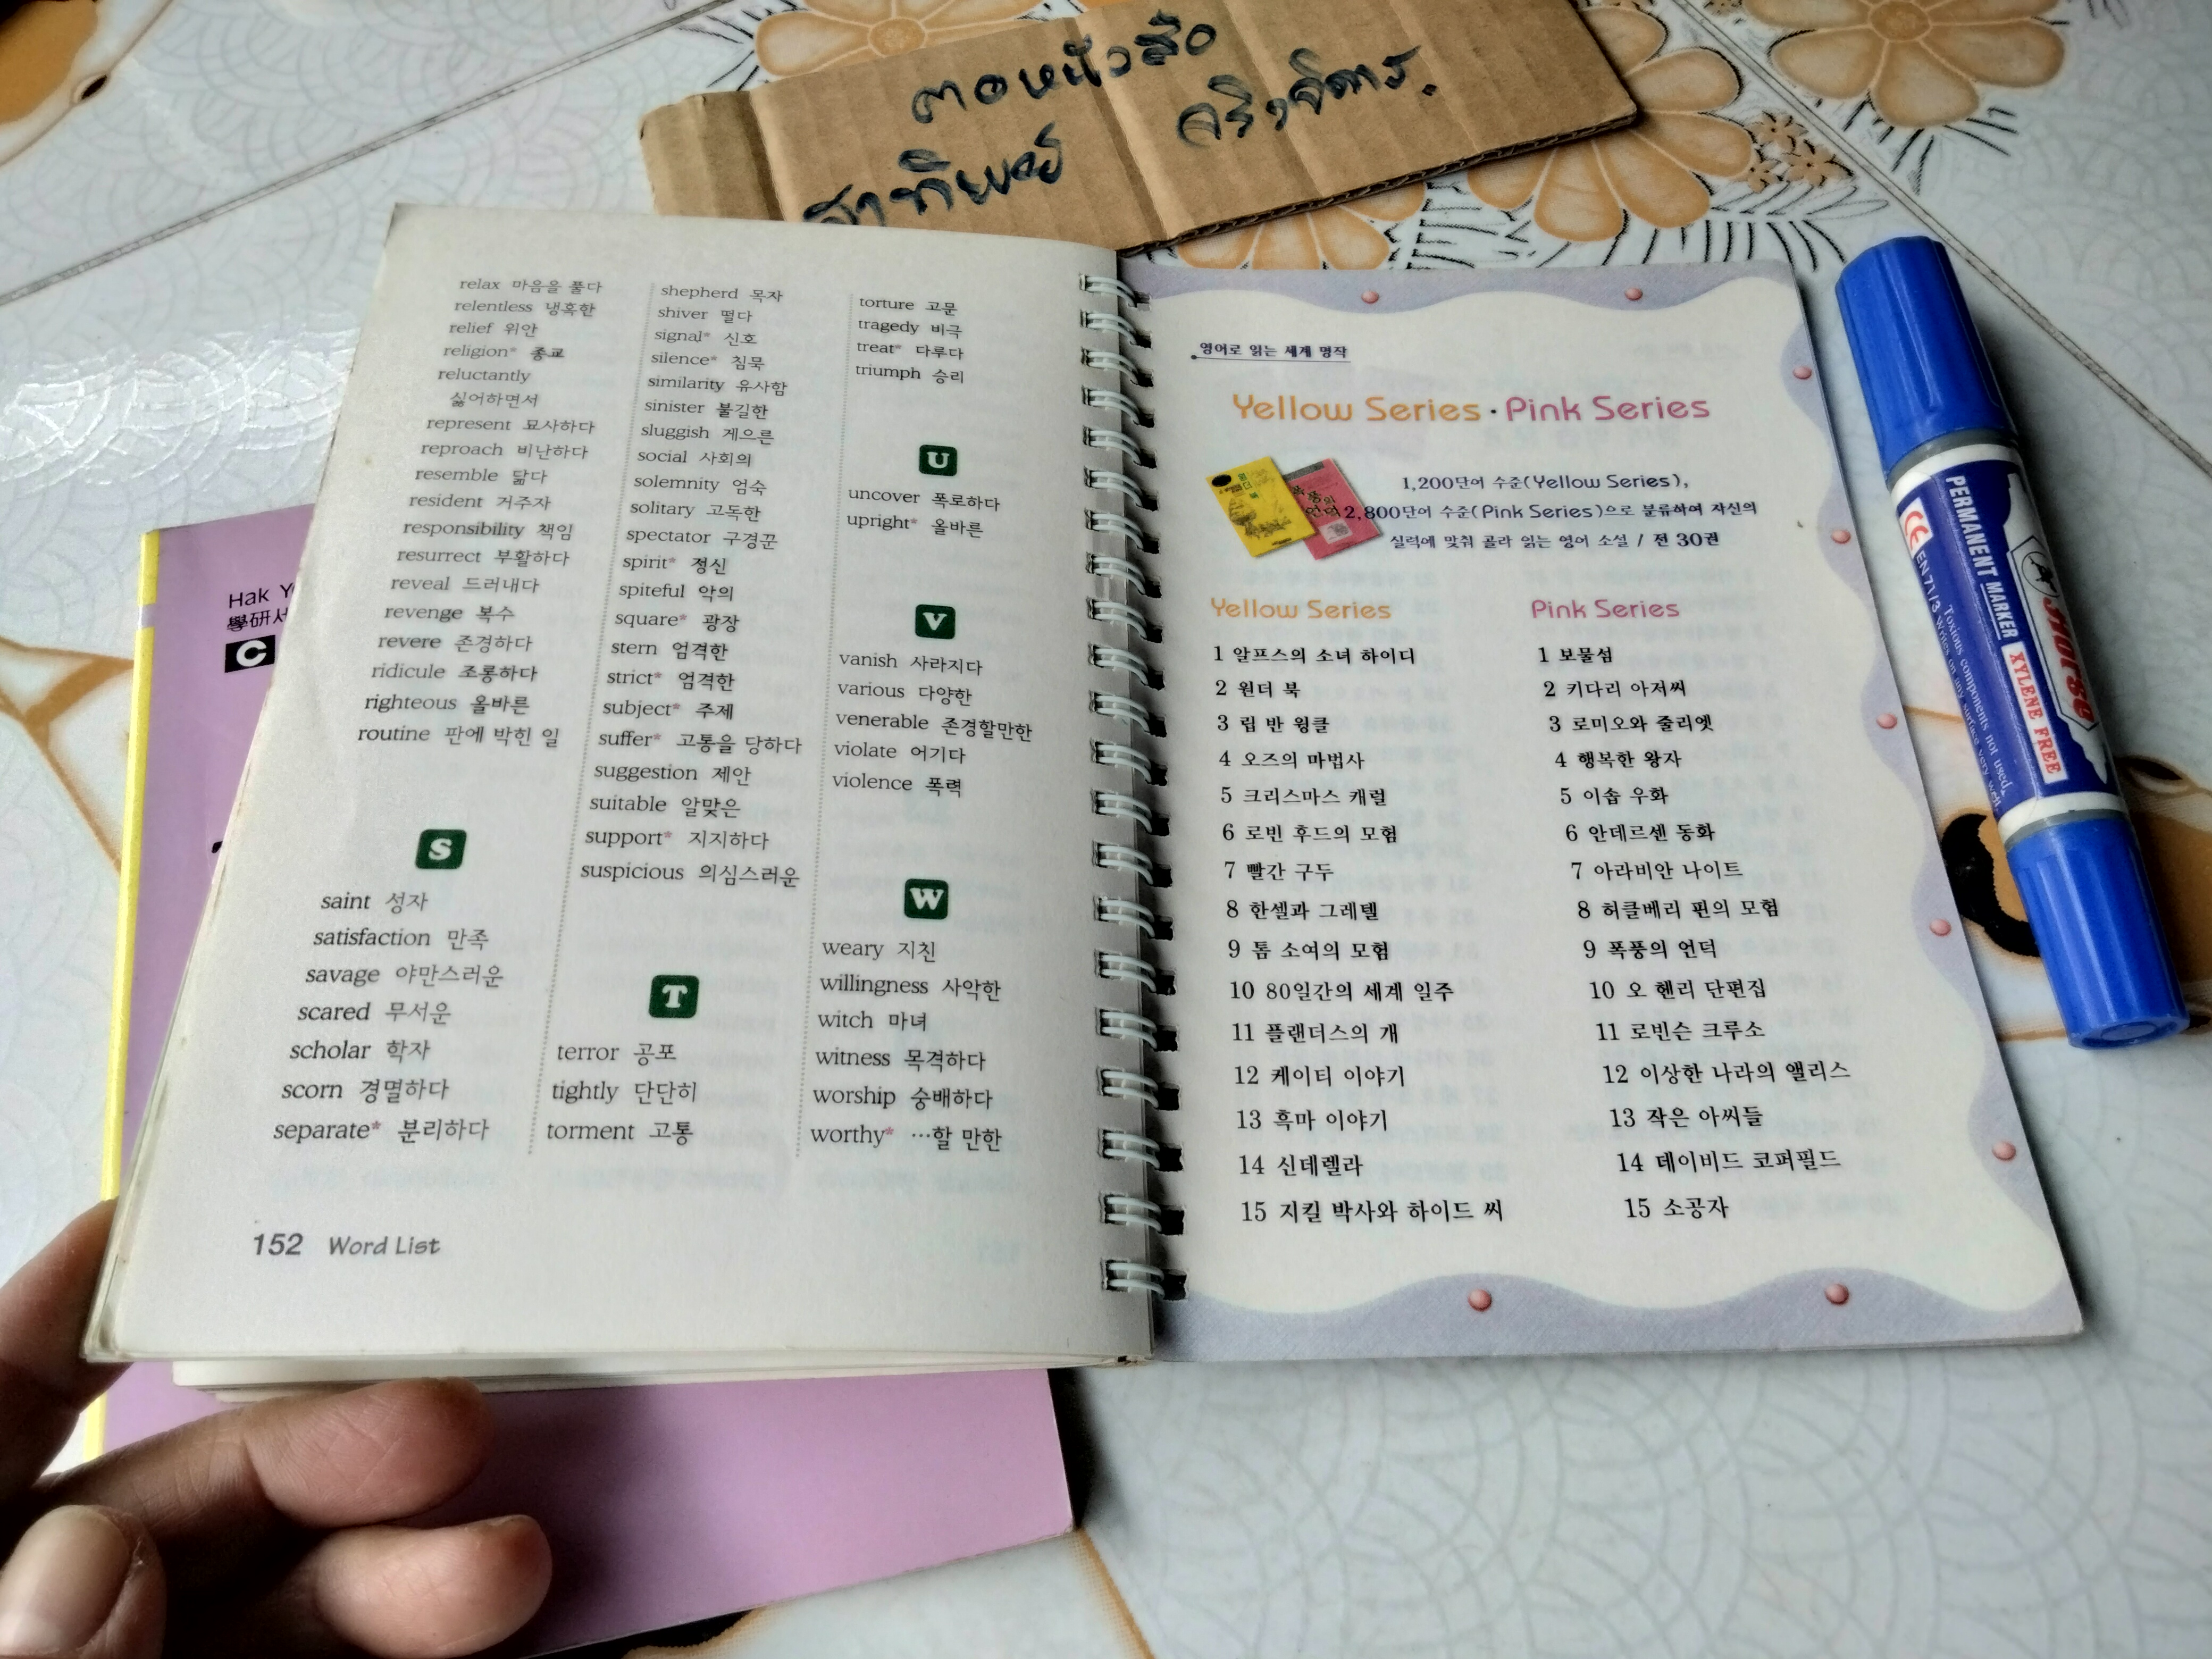 relax 마음을 풀다
relentless 냉혹한
relief 위안
religion* 종교
reluctantly
싫어하면서
represent 묘사하다
reproach 비난하다
resemble 닮다
resident 거주자
responsibility 책임
resurrect 부활하다
reveal 드러내다
revenge 복수
revere 존경하다
ridicule 조롱하다
righteous 올바른
routine 판에 박힌 일
S
saint 성자
satisfaction 만족
savage 야만스러운
scared 무서운
scholar 학자
scorn 경멸하다
separate* 분리하다
shepherd 목자
shiver 떨다
signal* 신호
silence* 침묵
similarity 유사함
sinister 불길한
sluggish 게으른
social 사회의
solemnity 엄숙
solitary 고독한
spectator 구경꾼
spirit* 정신
spiteful 악의
square* 광장
stern 엄격한
strict* 엄격한
subject* 주제
suffer* 고통을 당하다
suggestion 제안
suitable 알맞은
support* 지지하다
suspicious 의심스러운
T
terror 공포
tightly 단단히
torment 고통
torture 고문
tragedy 비극
treat* 다루다
triumph 승리
U
uncover 폭로하다
upright* 올바른
V
vanish 사라지다
various 다양한
venerable 존경할만한
violate 어기다
violence 폭력
W
weary 지친
willingness 사악한
witch 마녀
witness 목격하다
worship 숭배하다
worthy* …할 만한
152 Word List
영어로 읽는 세계 명작
Yellow Series · Pink Series
1,200단어 수준(Yellow Series),
2,800단어 수준(Pink Series)으로 분류하여 자신의
실력에 맞춰 골라 읽는 영어 소설 / 전 30권
Yellow Series
1 알프스의 소녀 하이디
2 원더 북
3 립 반 윙클
4 오즈의 마법사
5 크리스마스 캐럴
6 로빈 후드의 모험
7 빨간 구두
8 한셀과 그레텔
9 톰 소여의 모험
10 80일간의 세계 일주
11 플랜더스의 개
12 케이티 이야기
13 흑마 이야기
14 신데렐라
15 지킬 박사와 하이드 씨
Pink Series
1 보물섬
2 키다리 아저씨
3 로미오와 줄리엣
4 행복한 왕자
5 이솝 우화
6 안데르센 동화
7 아라비안 나이트
8 허클베리 핀의 모험
9 폭풍의 언덕
10 오 헨리 단편집
11 로빈슨 크루소
12 이상한 나라의 앨리스
13 작은 아씨들
14 데이비드 코퍼필드
15 소공자
Hak
學研
C
PERMANENT MARKER
XYLENE FREE
Horse
CE EN-71/3
Toxious components not used.
Writes on any surface very well.